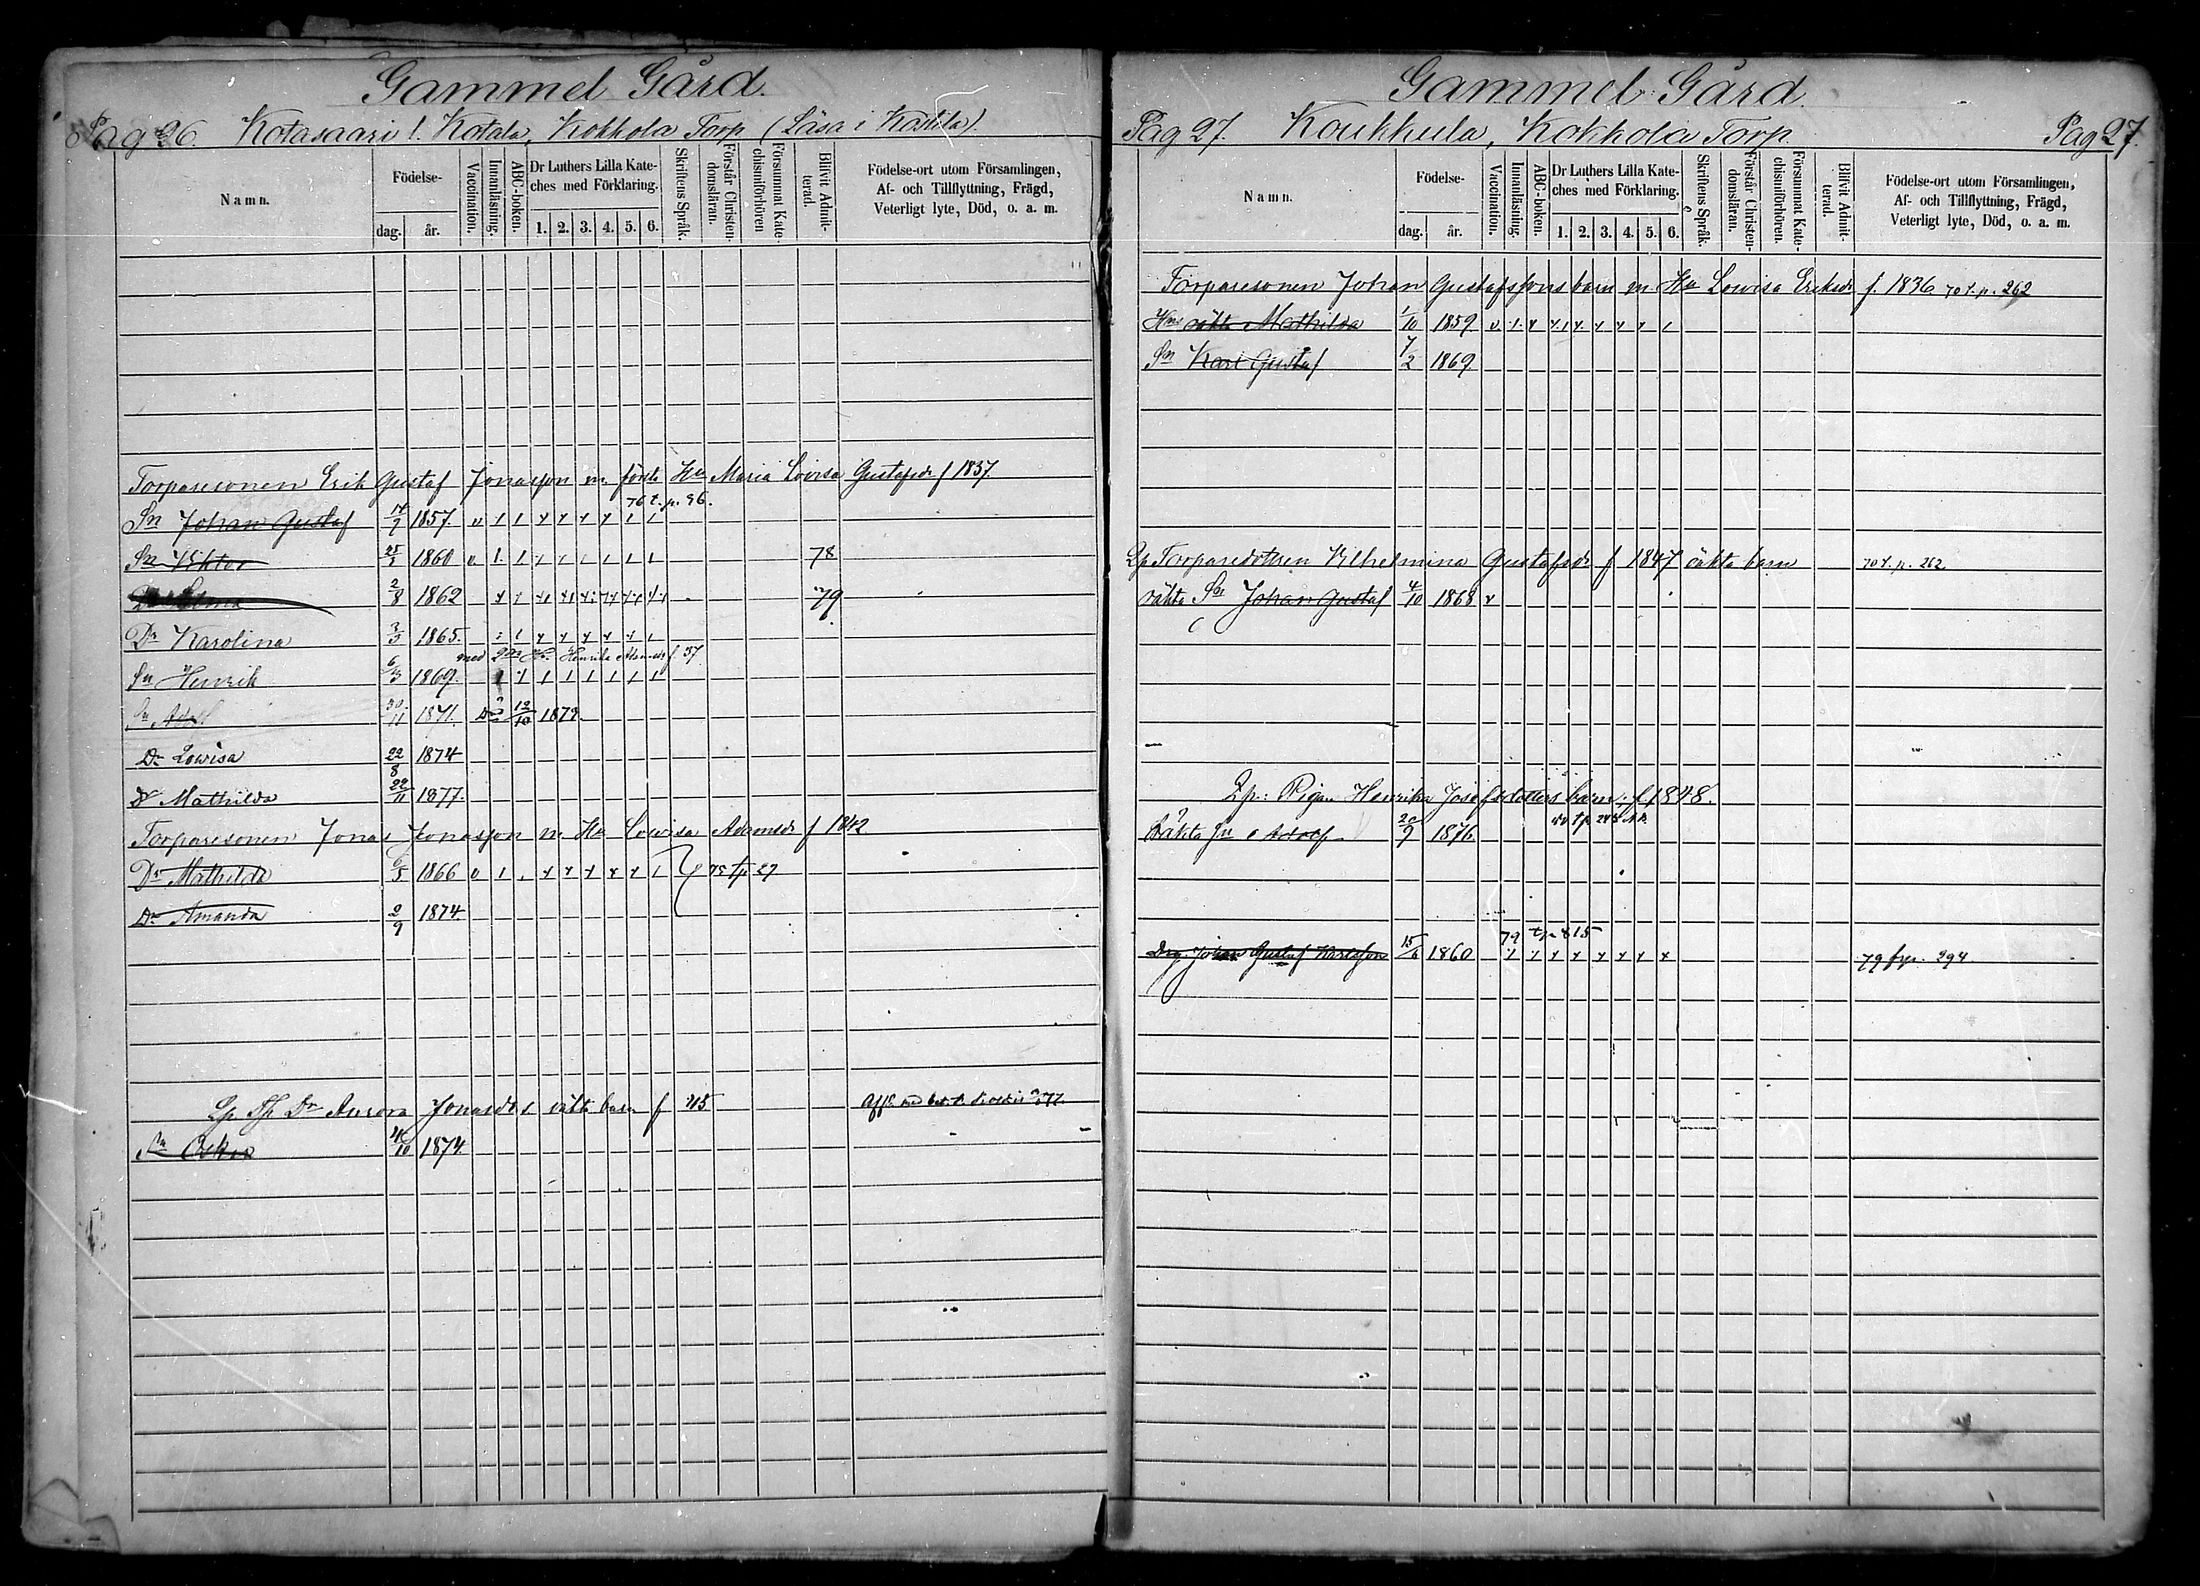 Gammel Gård.
Pag 26. Kotasaari l. Kotala, Kokkola Torp (Läsa i Kostila).
Namn.
Födelse-
dag. år.
Vaccination.
Innanläsning.
ABC-boken.
Dr Luthers Lilla Kate-
ches med Förklaring.
1. 2. 3. 4. 5. 6.
Skriftens Språk.
Förstår Christen-
domsläran.
Försummat Kate-
chismiförhören
Blifvit Admit-
terad.
Födelse-ort utom Församlingen,
Af- och Tillflyttning, Frägd,
Veterligt lyte, Död, o. a. m.
Torparesonen Erik Gustaf Jonasson m. förste Hu Maria Lovisa Gustafsdr f 1837.
76 t. p. 96.
Sn Johan Gustaf 1857.
Sn Viktor 1860 78
2/8 1862 79
Dr Karolina 3/3 1865.
med 2dra Hu. Henrika Adamsdr f. 37
Sn Henrik 6/3 1869.
Sn 30/11 1871. Dö 12/10 1879.
Dr Lowisa 22/8 1874
Dr Mathilda 22/11 1877.
Torparesonen Jonas Jonasson m. Hu Lowisa Adamsdr f 1842
Dr Mathilda 6/5 1866 75 t p 27
Dr Amanda 2/9 1874.
Lp Tp Dr Aurora Jonasdrs. oäkta barn f 45
Sn Oskar 1874.
Gammel Gård
Pag 27. Koukkula, Kokkola Torp. Pag 27.
Namn.
Födelse-
dag. år.
Vaccination.
Innanläsning.
ABC-boken.
Dr Luthers Lilla Kate-
ches med Förklaring.
1. 2. 3. 4. 5. 6.
Skriftens Språk.
Förstår Christen-
domsläran.
Försummat Kate-
chismiförhören.
Blifvit Admit-
terad.
Födelse-ort utom Församlingen,
Af- och Tillflyttning, Frägd,
Veterligt lyte, Död, o. a. m.
Torparesonen Johan Gustafssons barn m. Hu Lowisa Eriksdr f. 1836 70 t. p. 262
Hns oäkta Mathilda 1/10 1859
Sn Karl Gustaf 7/2 1869.
Lp Torparedottren Vilhelmina Gustafsdr f 1847 oäkta barn 70 t. p. 262
oäkta Sn Johan Gustaf 4/10 1868
Lp: Pigan Henrika Josefsdotters barn. f 1848.
Oäkta Sn Adolf 20/9 1876.
79 t p 815
Drg. Johan Gustaf Karlsson 15/6 1860 79 fr p. 394